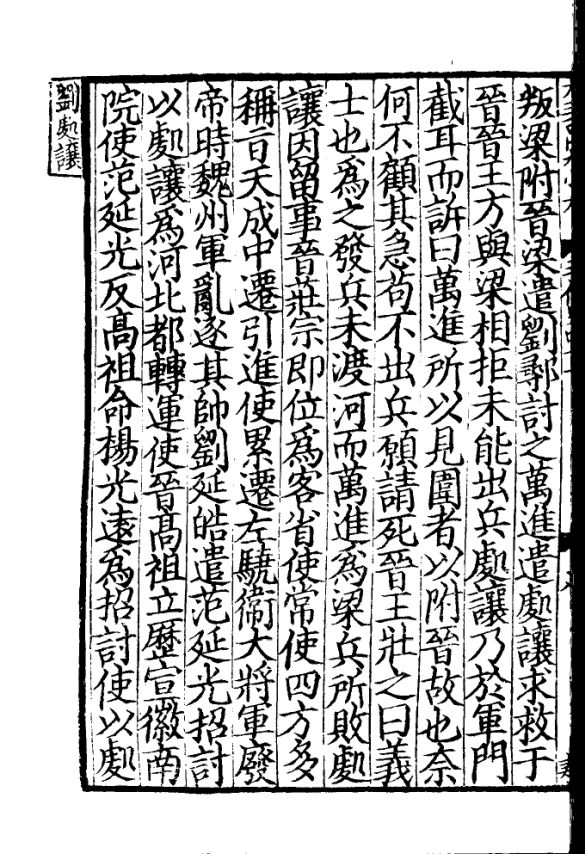 叛梁附晉梁遣劉鄩討之萬進遣處讓求救于
晉晉王方與梁相拒未能出兵處讓乃於軍門
截耳而訴曰萬進所以見圍者以附晉故也奈
何不顧其急苟不出兵願請死晉王壯之曰義
士也爲之發兵未渡河而萬進爲梁兵所敗處
讓因留事晉莊宗即位爲客省使常使四方多
稱旨天成中遷引進使累遷左驍衛大將軍廢
帝時魏州軍亂逐其帥劉延皓遣范延光招討
以處讓爲河北都轉運使晉髙祖立歷宣徽南
院使范延光反髙祖命楊光遠爲招討使以處
劉處讓